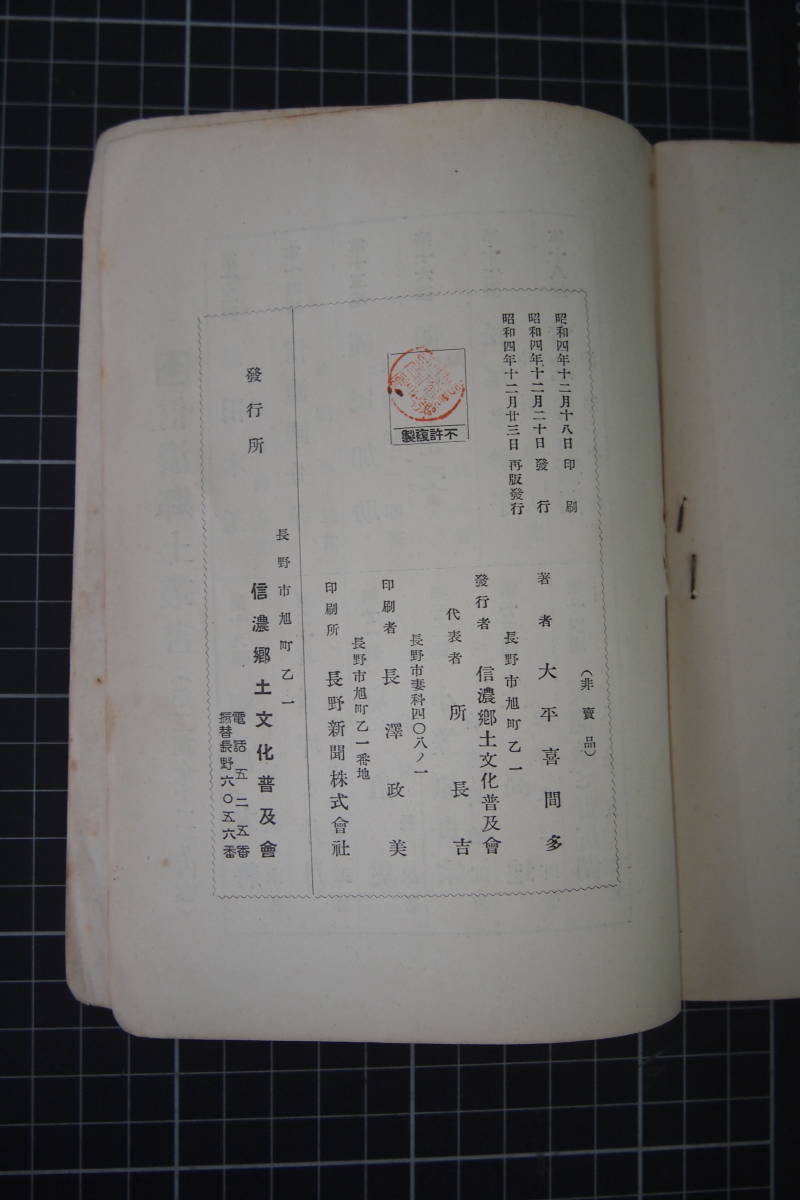 昭和四年十二月十八日 印刷
昭和四年十二月二十日 發行
昭和四年十二月廿三日 再版發行
不許複製
(非賣品)
著者 大平喜間多
長野市旭町乙一
發行者 信濃鄉土文化普及會
代表者 所長吉
長野市妻科四〇八ノ一
印刷者 長澤政美
長野市旭町乙一番地
印刷所 長野新聞株式會社
發行所
長野市旭町乙一
信濃鄉土文化普及會
電話五二五番
振替長野六〇五六番